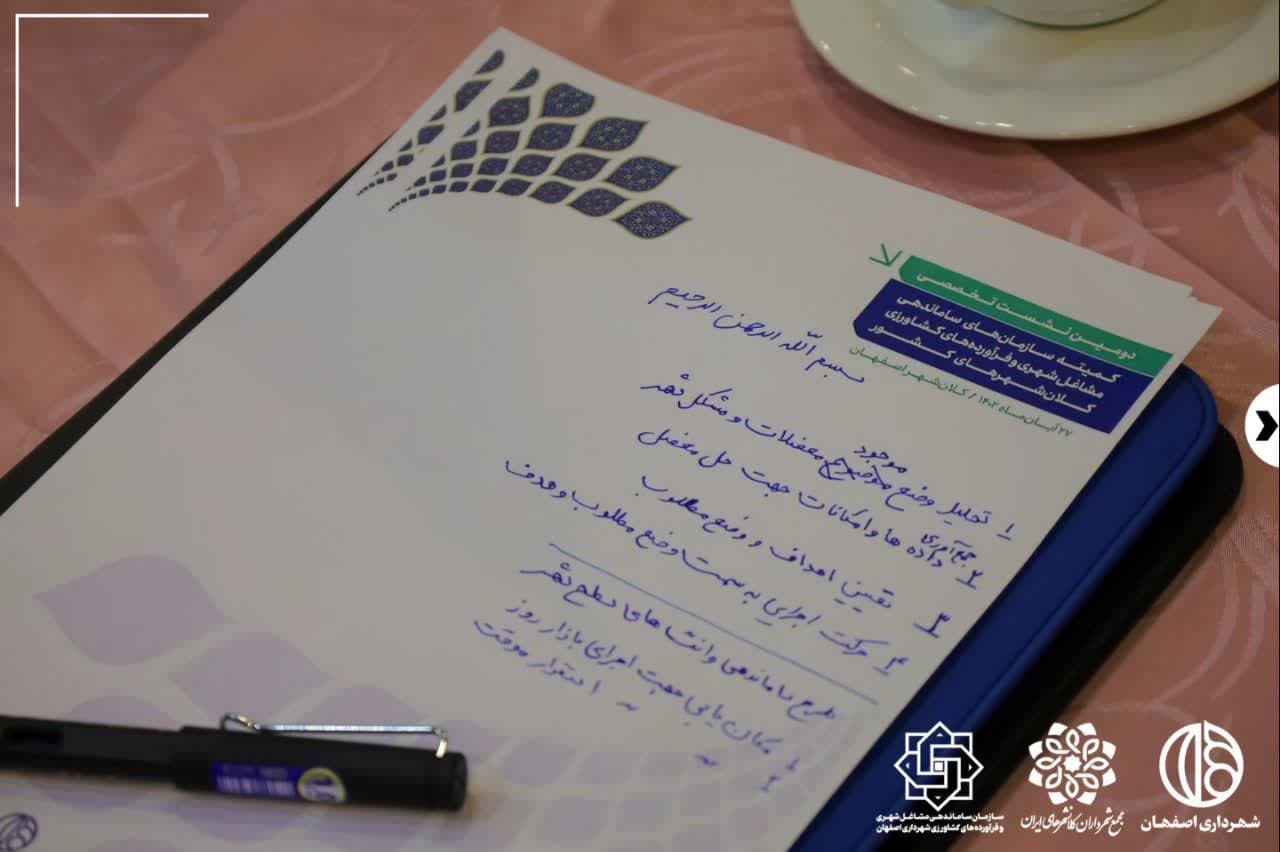 دومین نشست تخصصی
کمیته سازمان‌های ساماندهی
مشاغل شهری و فرآورده‌های کشاورزی
کلان‌شهرهای کشور
۲۷ آبان‌ماه ۱۴۰۲ / کلان‌شهر اصفهان
بسم الله الرحمن الرحیم
۱ تحلیل وضع موجود معضلات و مشکل شهر
۲ جمع‌آوری داده ها و امکانات جهت حل معضل
۳ تعیین اهداف و وضع مطلوب
۴ حرکت اجرایی به سمت وضع مطلوب و هدف
طرح ساماندهی وانت های سطح شهر
۱ مکان یابی جهت اجرای بازار روز
۲ استقرار موقت
سازمان ساماندهی مشاغل شهری
و فرآورده‌های کشاورزی شهرداری اصفهان
مجمع شهرداران کلانشهرهای ایران
شهرداری اصفهان